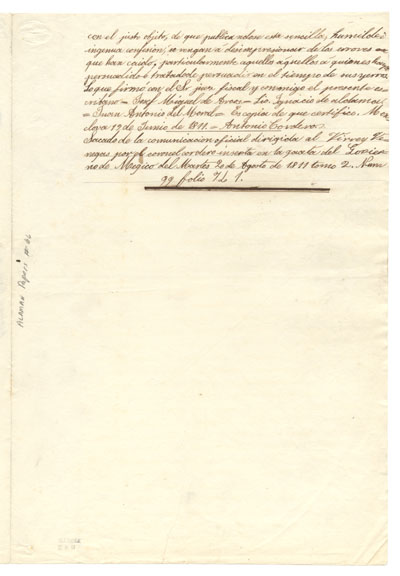 con el justo objeto, de que publicandose esta sencilla, humilde é
ingenua confesion, se vengan a desimpresionar de los errores en
que han caido, particularmente aquellos aquellos a quienes haya
persuadido ó tratado de persuadir en el tiempo de sus yerros.
Lo que firmó con el Sr. juez fiscal y conmigo el presente es-
cribano = José Miguel de Arcos = Lic. Ignacio de Aldama =
Juan Antonio del Moral = Es copia de que certifico. Mon-
clova 19 de Junio de 1811. = Antonio Cordero.
Sacado de la comunicacion oficial dirigida al Virrey Ve-
negas por el coronel Cordero inserta en la gaceta del Govier-
no de Megico del Martes 20 de Agosto de 1811 tomo 2. Num.
99 folio 741.
ALAMAN Papers nº